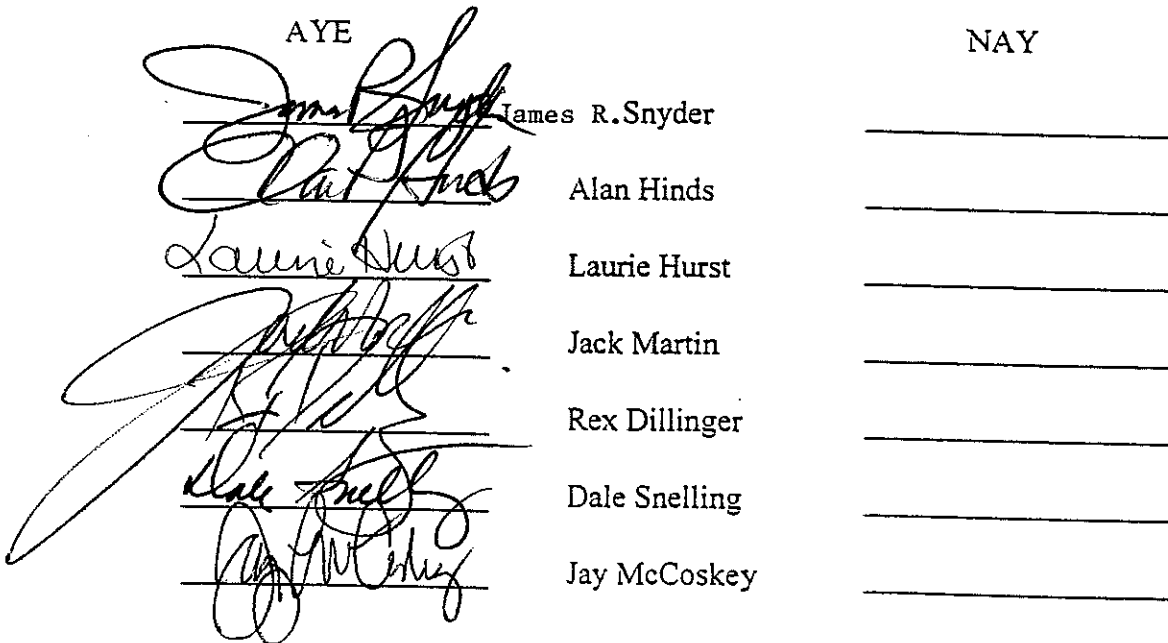 AYE NAY
James R. Snyder James R.Snyder
Alan Hinds
Laurie Hurst Laurie Hurst
Jack Martin
Rex Dillinger
Dale Snelling Dale Snelling
Jay McCoskey Jay McCoskey